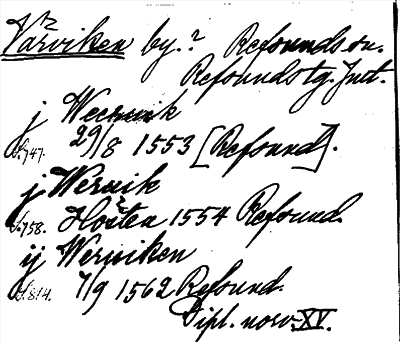 Värviken by.? Refsunds sn.
Refsunds tg. Jmt.
j Wervik
S.747. 29/8 1553 [Refsund].
j Wervik
S.758. Hösten 1554 Refsund.
ij Werviken
S.814. 7/9 1562 Refsund.
Dipl. norv. XV.